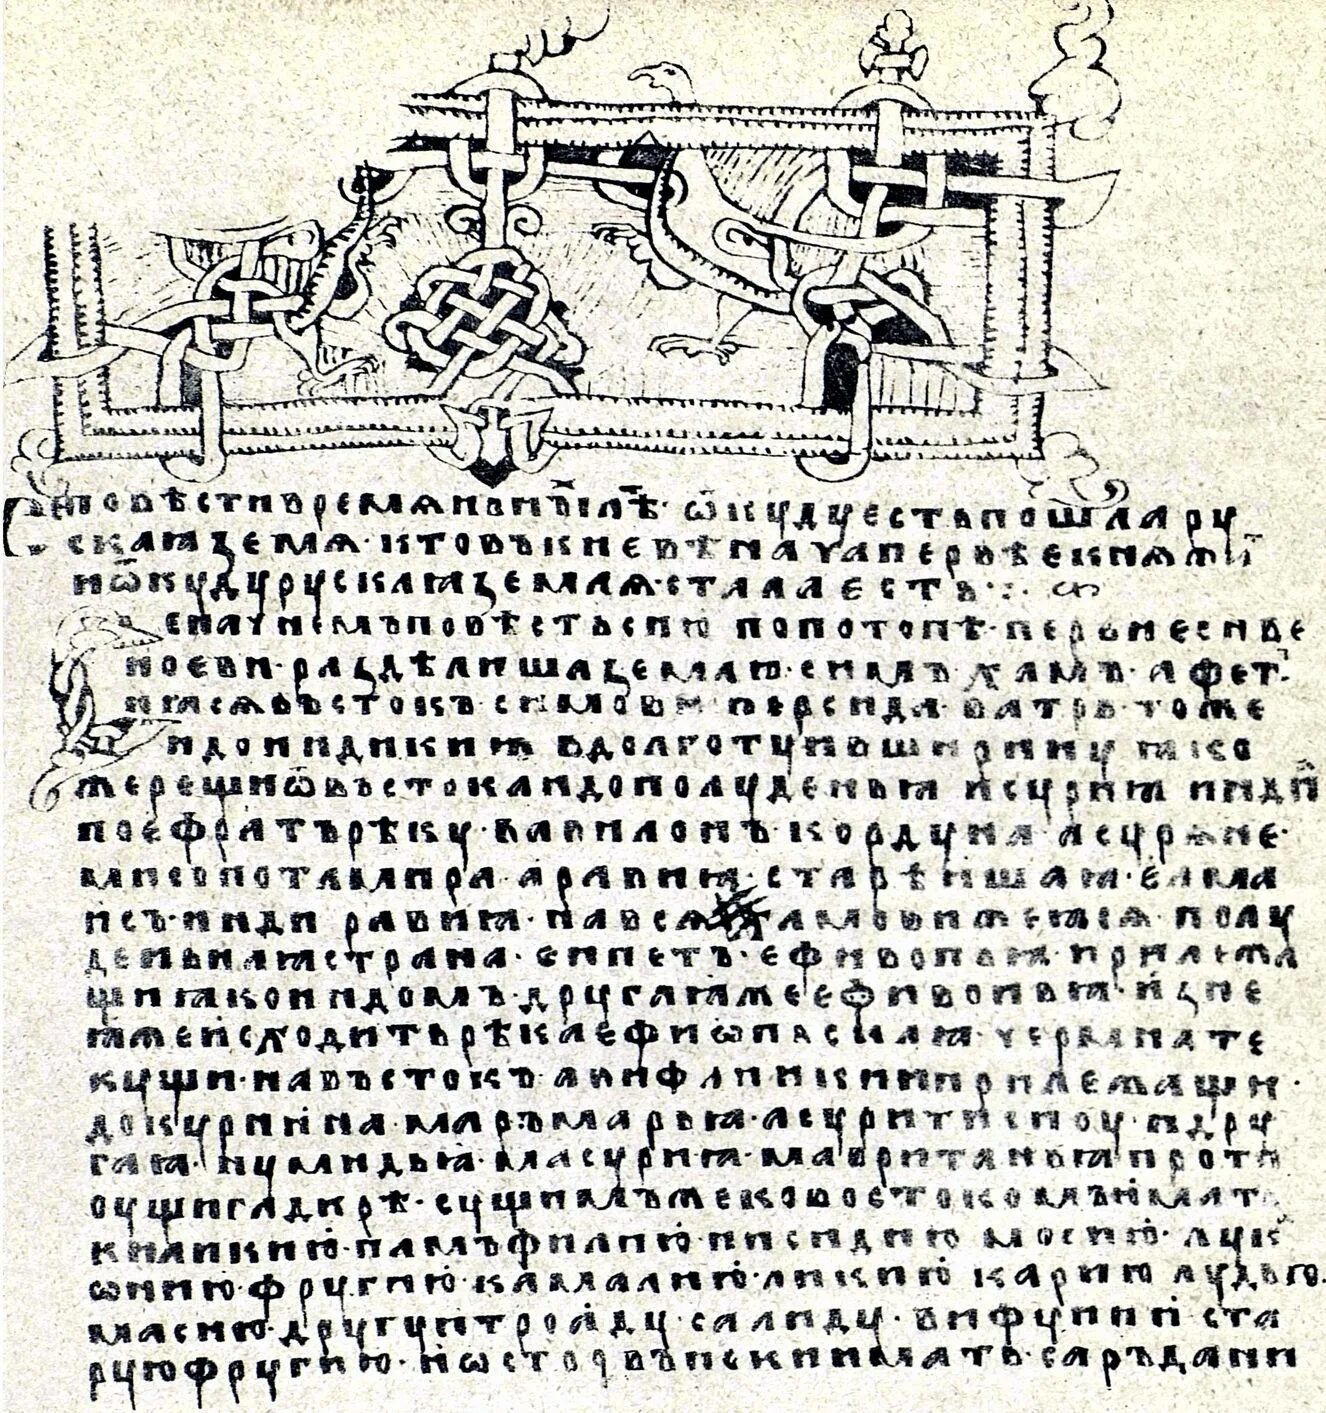 Се повѣсти времѧньныꙗ лѣт · ѿкуду єсть пошла ру
скаꙗ земѧ · кто въ києвѣ нача первѣє кнѧжи
ти ѿкуду рускаꙗ землѧ · стала єсть :·
Се начнемъ повѣсть сию по потопѣ · первиє снве
ноєви · раздѣлиша землю · симъ хамъ · афет ·
и ꙗсѧ въстокъ симови персида · ватрь · тоже
и до индикиꙗ в долготу и въ ширину ꙗко
же рещи ѿ въстока и до полуденьꙗ и суриꙗ инди
по єфратъ рѣку · вавилонъ · кордуна асурѧне ·
мисопотампра · аравиꙗ · старѣишаꙗ · єлма
исъ · инди равиꙗ · на всѧ · хамови же ꙗсѧ · полу
деньнаꙗ страна · єюпетъ · єфивопьꙗ · прилежа
щиꙗ ко индомъ · другаꙗ же єфивопьꙗ · из не
ꙗже исходить рѣка єфиѡпьскаꙗ · чермна те
кущи · на въстокъ · фивуи ливи прилежащи ·
до куриниꙗ · маръмарьꙗ · асурити сноу · и дру
гаꙗ · нумидьꙗ · масуриꙗ · мавританьꙗ проти
оущи гадирѣ · сущимъ же ко востокомъ имать
киликию · памъфилию · писидию мосию · лук
ѡнию · фругию · камалию · ликию карию лудью ·
масию · другую троаду · салиду · вифунию ста
рую фругию · и ѡстро въ пски имать · саръдани